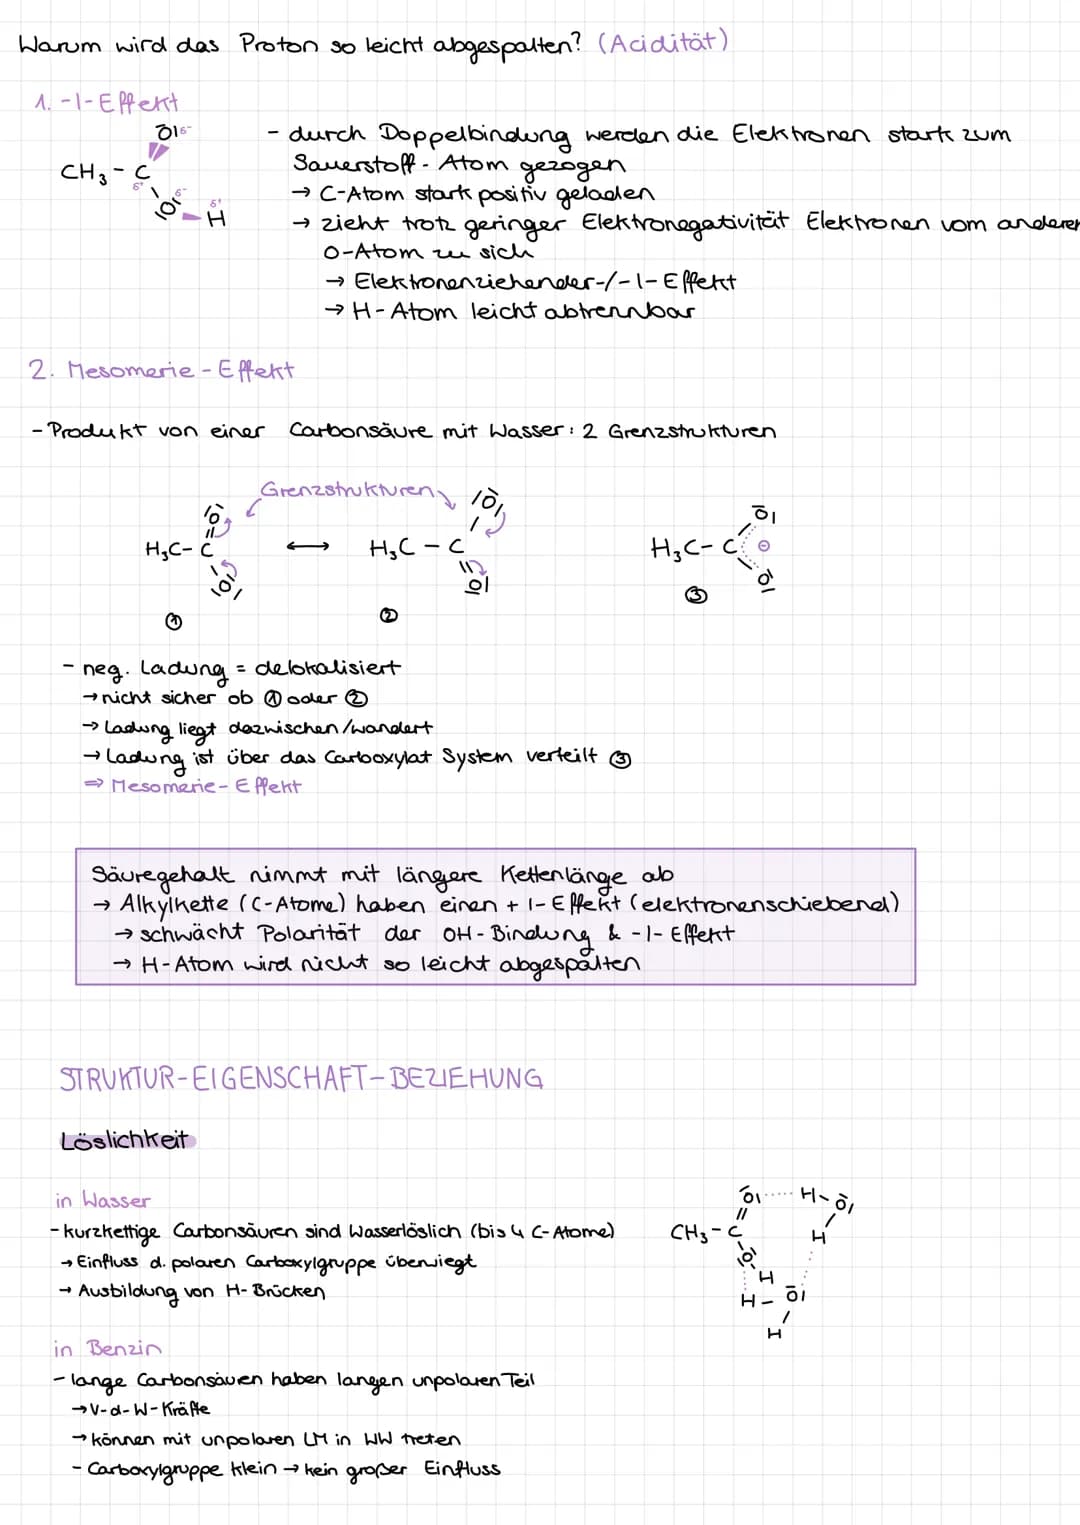 Warum wird das Proton so leicht abgespalten? (Acidität)
1. -I-Effekt
- durch Doppelbindung werden die Elektronen stark zum
Sauerstoff-Atom gezogen
→ C-Atom stark positiv geladen
→ zieht trotz geringer Elektronegativität Elektronen vom anderen
O-Atom zu sich
→ Elektronenziehender-/-I-Effekt
→ H-Atom leicht abtrennbar
O| δ-
CH₃ - C
δ+
δ-
|O
δ+
H
2. Mesomerie-Effekt
- Produkt von einer Carbonsäure mit Wasser: 2 Grenzstrukturen
Grenzstrukturen
|O|
H₃C - C
|O|
①
⟷
|O|
H₃C - C
|O|
②
O|
H₃C - C ⊖
O|
③
- neg. Ladung = delokalisiert
→ nicht sicher ob ① oder ②
→ Ladung liegt dazwischen/wandert
→ Ladung ist über das Carboxylat System verteilt ③
⇒ Mesomerie-Effekt
Säuregehalt nimmt mit längere Kettenlänge ab
→ Alkylkette (C-Atome) haben einen +I-Effekt (elektronenschiebend)
→ schwächt Polarität der OH-Bindung & -I-Effekt
→ H-Atom wird nicht so leicht abgespalten
STRUKTUR-EIGENSCHAFT-BEZIEHUNG
Löslichkeit
in Wasser
- kurzkettige Carbonsäuren sind Wasserlöslich (bis 4 C-Atome)
→ Einfluss d. polaren Carboxylgruppe überwiegt
→ Ausbildung von H-Brücken
O| ····· H - O|
CH₃ - C
H
|O|
H
H - O|
H
in Benzin
- lange Carbonsäuen haben langen unpolaren Teil
→ V-d-W-Kräfte
→ können mit unpolaren LM in WW treten
- Carboxylgruppe klein → kein großer Einfluss